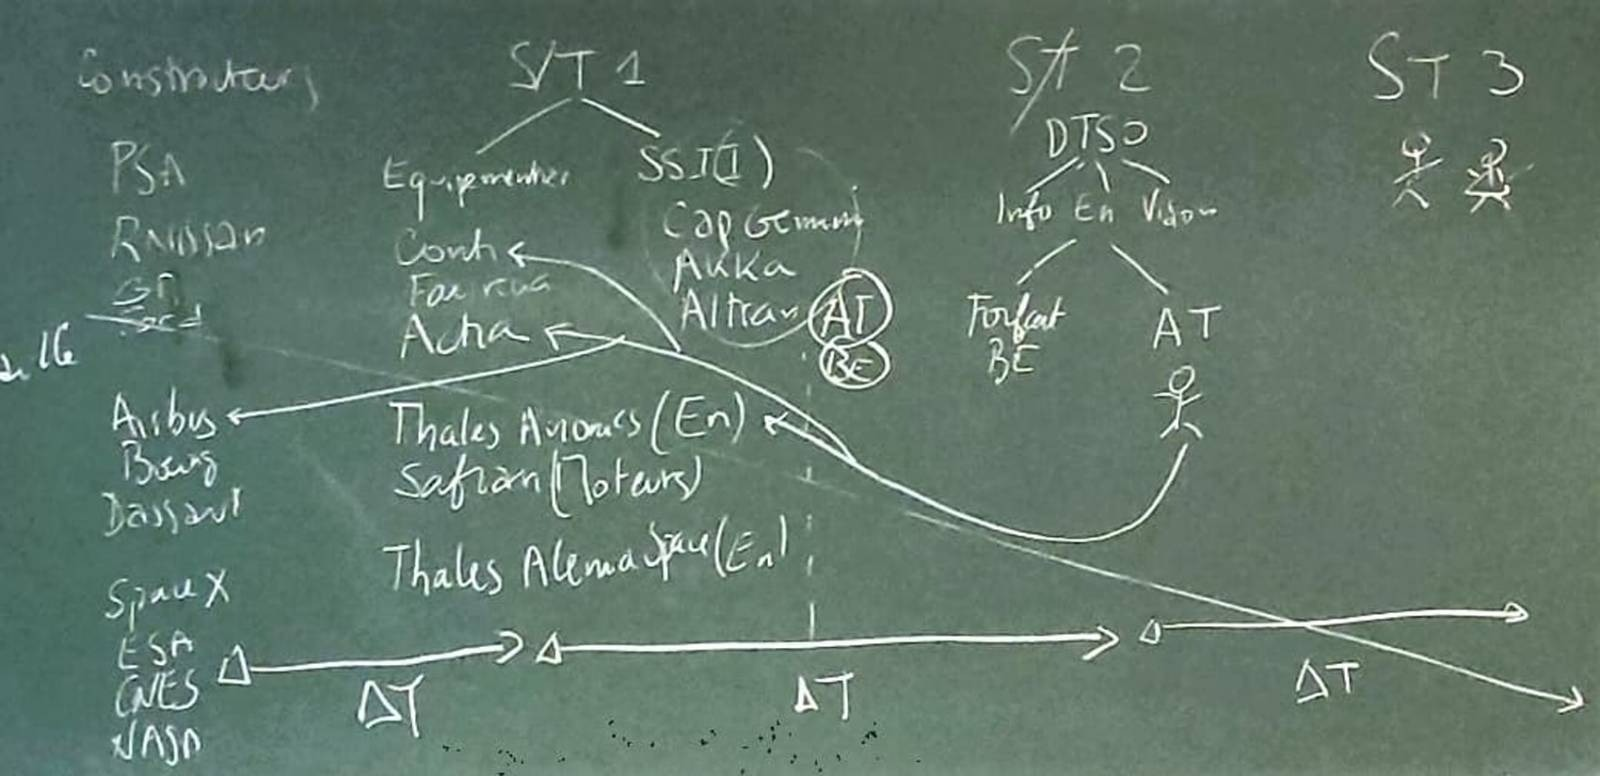 Constructeurs
PSA
RNissan
GM
Ford
Airbus
Boeing
Dassault
SpaceX
ESA
CNES
NASA
S/T 1
Equipementier
Conti
Faurecia
Actia
Thales Avionics (En)
Safran (Moteurs)
Thales Alenia Space (En)
SSI(I)
Cap Gemini
AKKA
Altran
AT
BE
S/T 2
DTSO
Info En Vision
Forfait
BE
AT
ST 3
ΔT
ΔT
ΔT